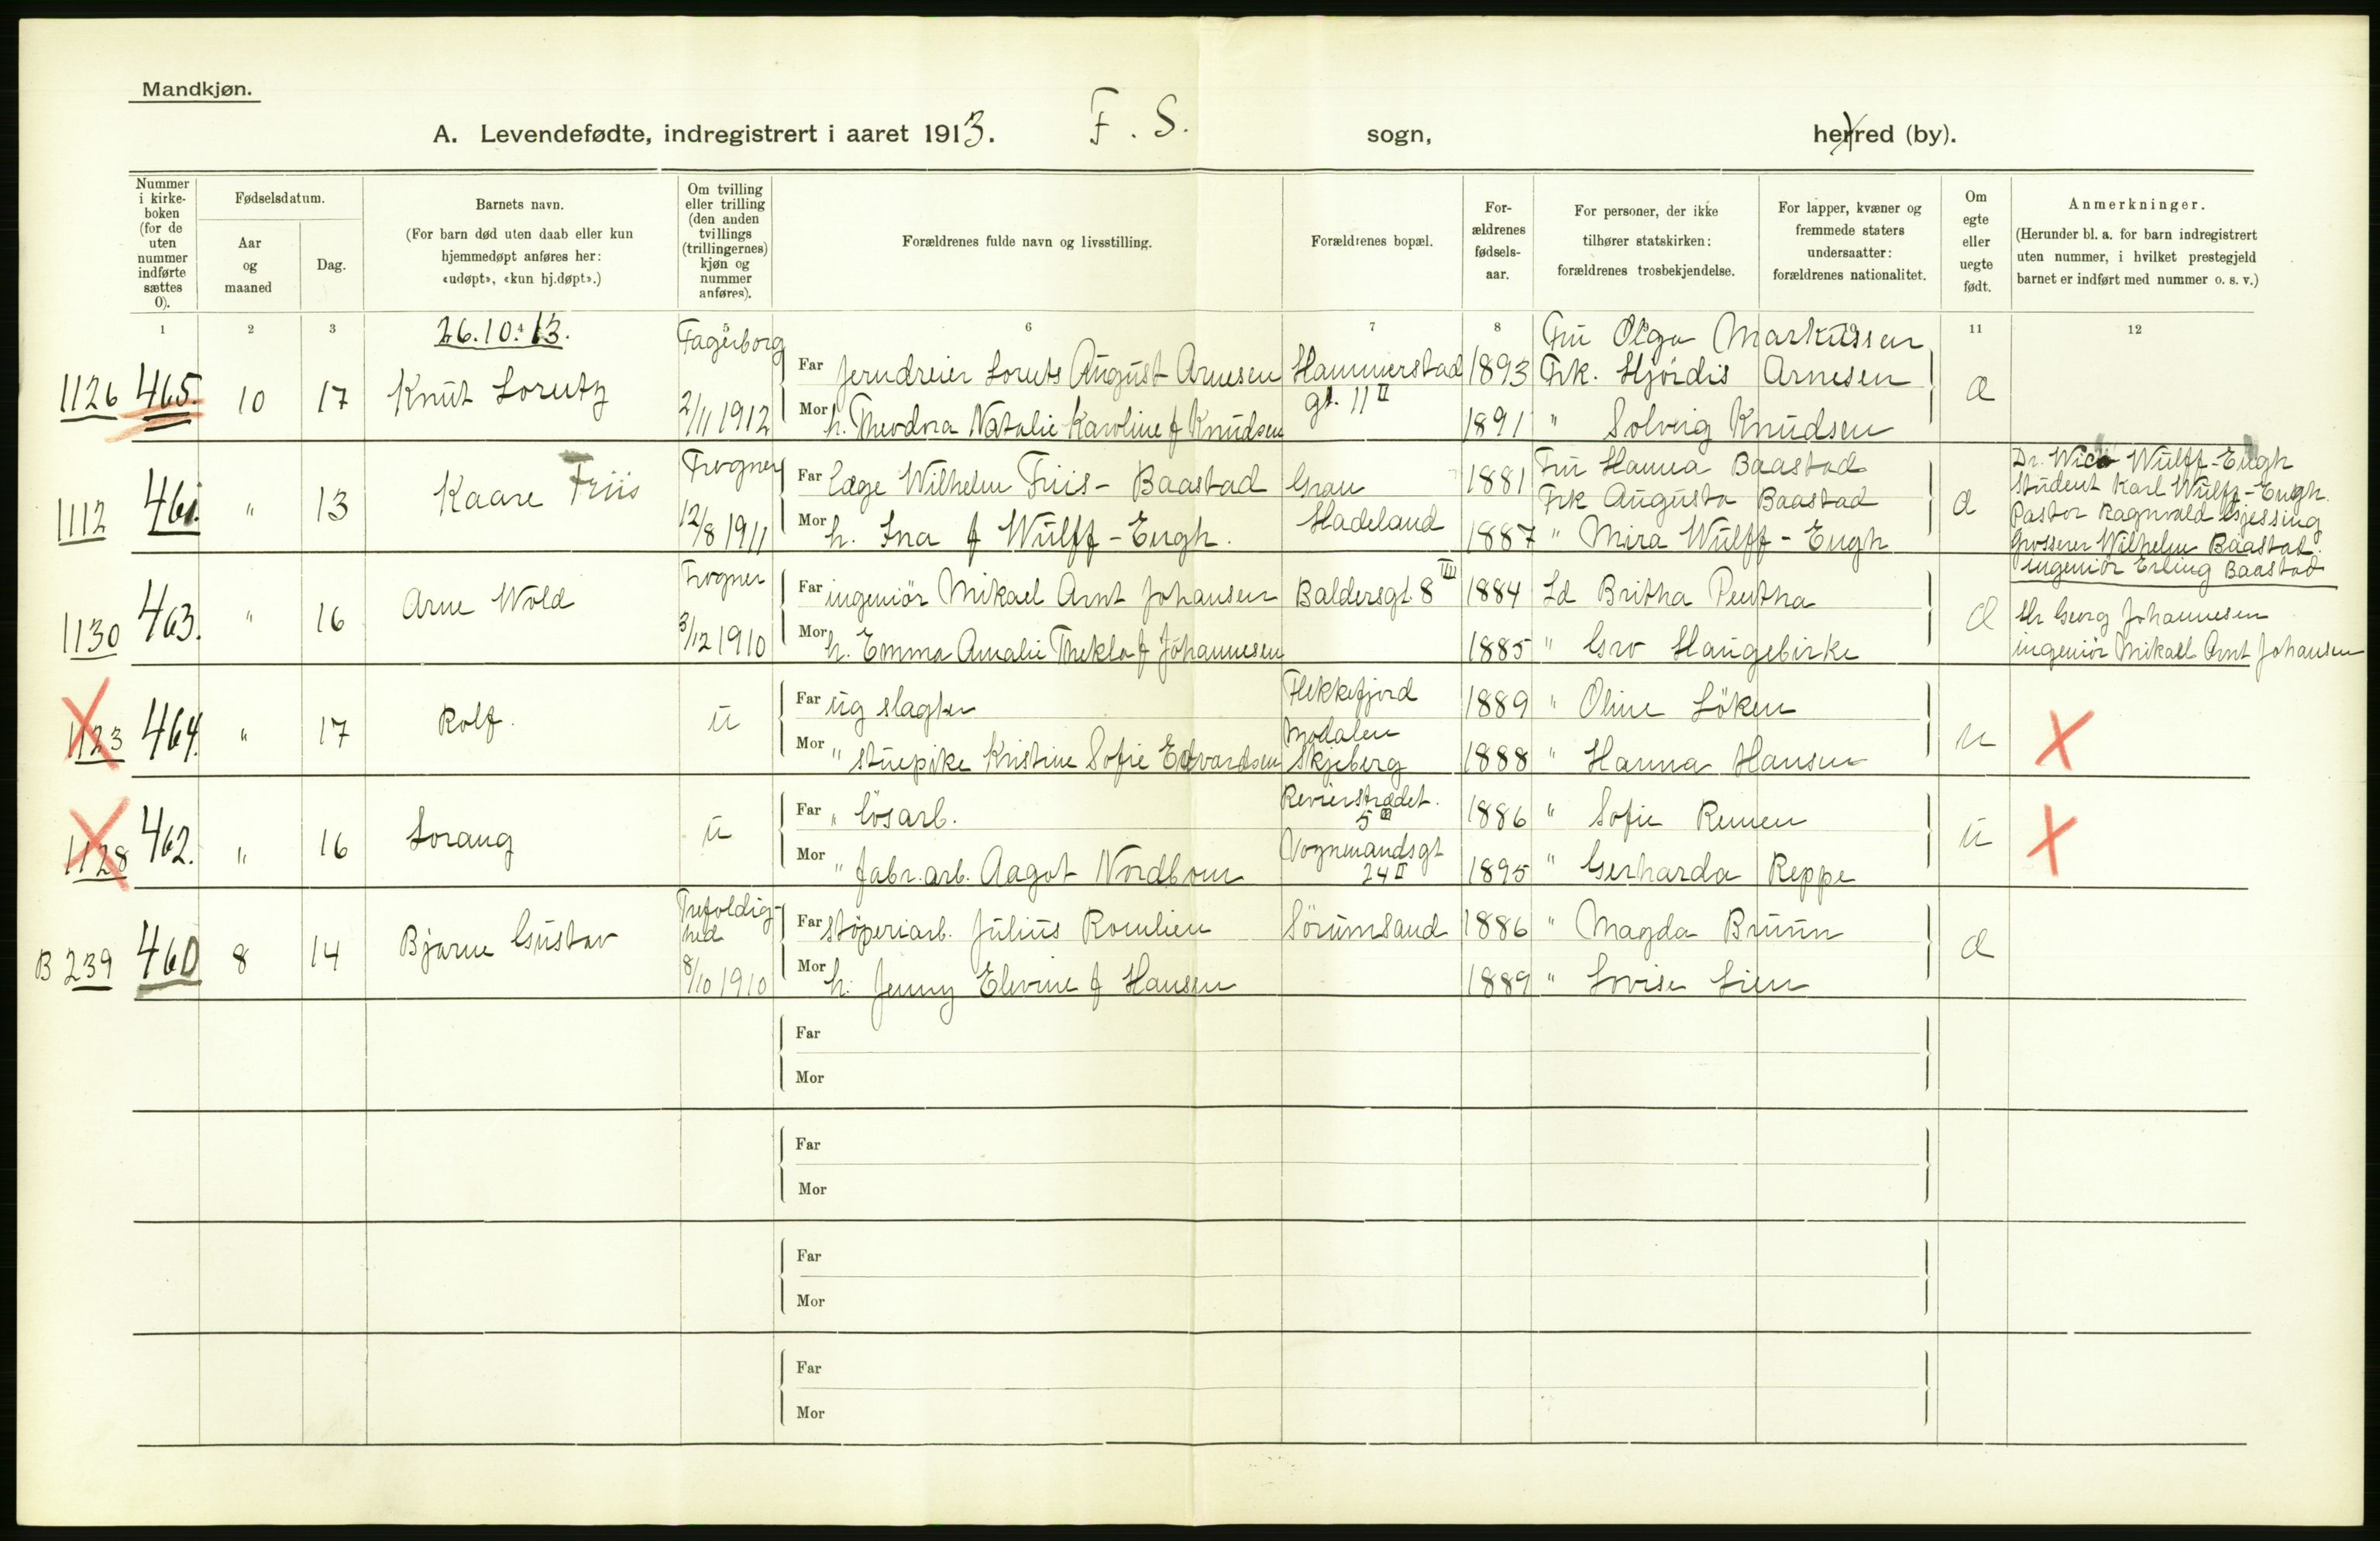 Mandkjøn.
A. Levendefødte, indregistrert i aaret 1913. F. S. sogn, herred (by).
Nummer i kirke-boken (for de uten nummer indførte sættes 0).
Fødselsdatum.
Aar og maaned
Dag.
Barnets navn.
(For barn død uten daab eller kun hjemmedøpt anføres her: «udøpt», «kun hj.døpt».)
Om tvilling eller trilling (den anden tvillings (trillingernes) kjøn og nummer anføres).
Forældrenes fulde navn og livsstilling.
Forældrenes bopæl.
For-ældrenes fødsels-aar.
For personer, der ikke tilhører statskirken: forældrenes trosbekjendelse.
For lapper, kvæner og fremmede staters undersaatter: forældrenes nationalitet.
Om egte eller uegte født.
Anmerkninger.
(Herunder bl. a. for barn indregistrert uten nummer, i hvilket prestegjeld barnet er indført med nummer o. s. v.)
1 2 3 4 5 6 7 8 11 12
26.10.13.
Fagerborg
Fru Olga Markussen
1126 465. 10 17 Knut Lorentz
Far jerndreier Lorents August Arnesen Hammerstad 1893 Frk. Hjördis Arnesen
gt. 11 II
æ
2/11 1912
Mor h. Theodora Natalie Karoline f Knudsen 1891 " Solveig Knudsen
Frogner
Fru Hanna Baastad
Dr. Wulff-Engh
1112 461. " 13 Kaare Friis
Far læge Wilhelm Friis - Baastad Gran 1881 Frk Augusta Baastad
æ
student Karl Wulff-Engh.
Pastor Ragnvald Gjessing
12/8 1911
Mor h. Ina f Wulff - Engh. Hadeland 1887 " Mira Wulff - Engh
Grosserer Wilhelm Baastad.
ingeniör Erling Baastad
Frogner
1130 463. " 16 Arne Wold
Far ingeniör Mikael Arnt Johansen Baldersgt. 8 IIII 1884 Ld Britha Pentha
æ
Hr Georg Johannesen
3/12 1910
Mor h. Emma Amalie Thekla f Johannesen 1885 " Gro Haugebirke
ingeniör Mikael Arnt Johansen
1123 464. " 17 Rolf. u
Far ug slagter Flekkefjord 1889 " Oline Löken
u X
Modalen
Mor " stuepike Kristine Sofie Edvardsen Skjeberg 1888 " Hanna Hansen
1128 462. " 16 Sorang u
Far " lösarb. Revierstrædet. 5 III 1886 " Sofie Remen
u X
Mor " fabr.arb. Aagot Nordbom Vognmandsgt 24 II 1895 " Gerharda Reppe
Trefoldig-
hed
B 239 460 8 14 Bjarne Gustav
Far støperiarb. Julius Romlien Sörumsand 1886 " Magda Bruun
æ
8/10 1910
Mor h. Jenny Elevine f Hansen 1889 " Lovise Lien
Far
Mor
Far
Mor
Far
Mor
Far
Mor